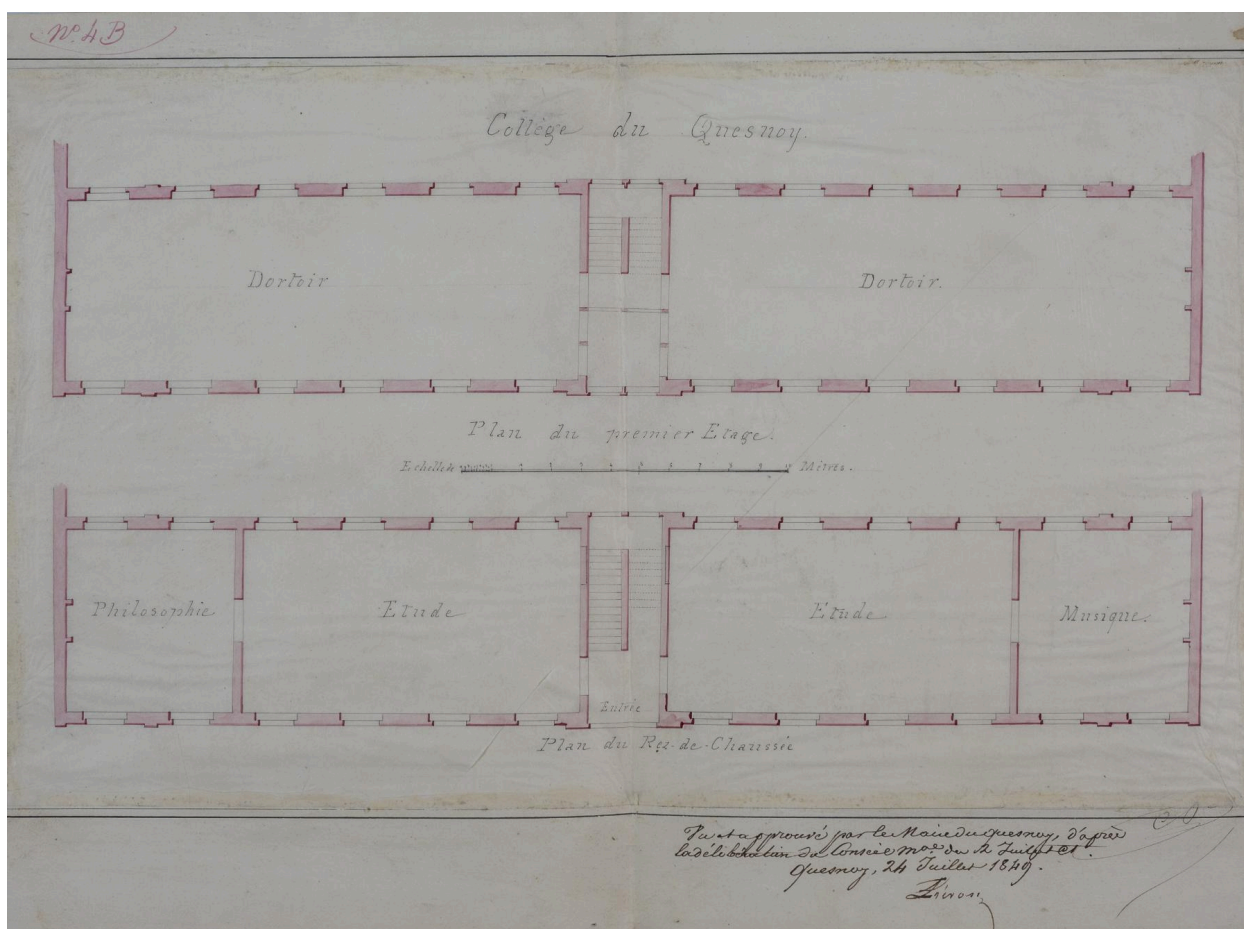 Nº 4 B
Collège du Quesnoy.
Dortoir
Dortoir.
Plan du premier Etage.
Echelle de Mètres.
Philosophie
Etude
Etude
Musique.
Entrée
Plan du Rez-de-Chaussée
Vu et approuvé par le Maire du Quesnoy, d'après
la délibération du Conseil mal du 12 Juillet ct.
Quesnoy, 24 Juillet 1849.